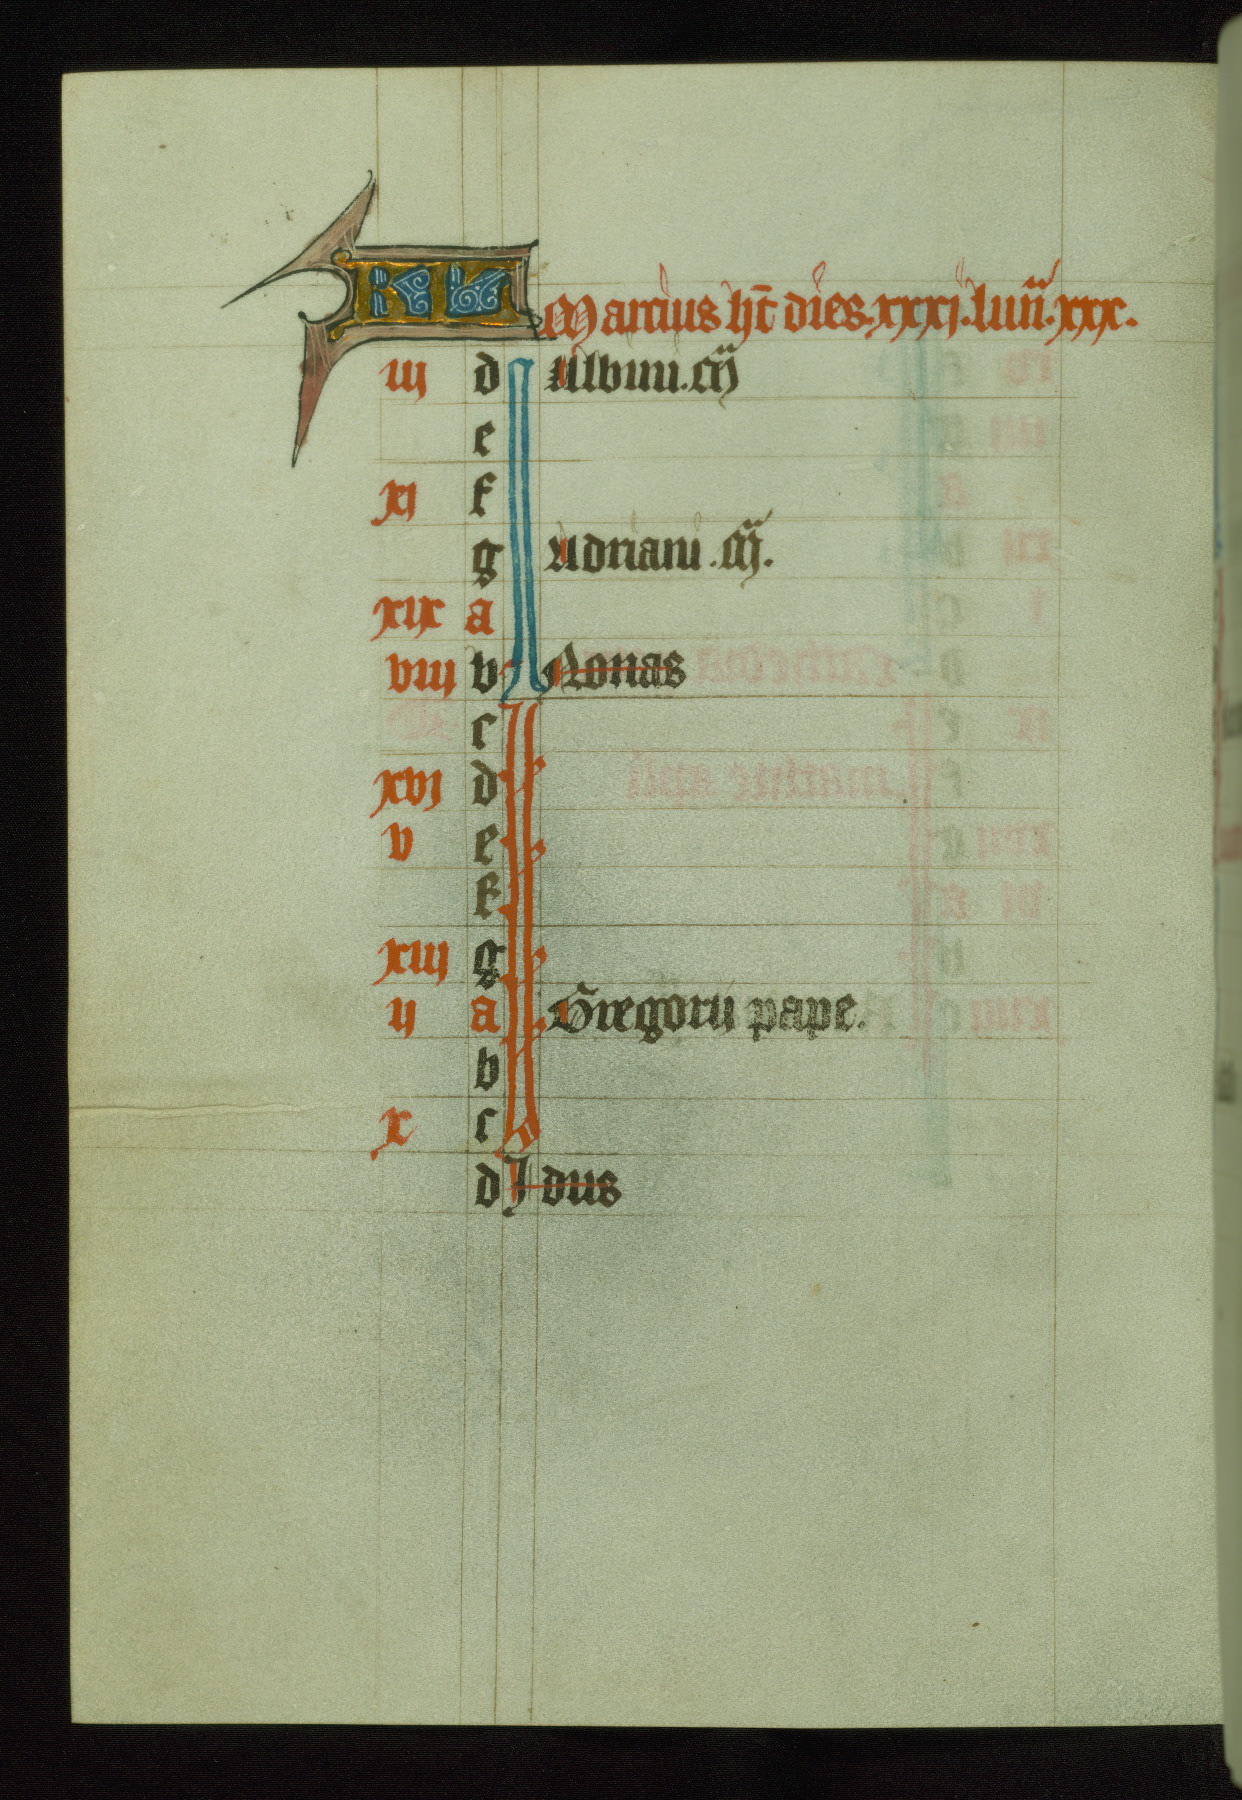 KL Marcius ht̄ dies. xxxi. lun̄. xxx.
iij d Albini. ɔf̄
e
xi f
g Adriani. m̄.
xix a
viij b Nonas
c
xvi d
v e
f
xiij g
ij a Gregorii pape.
b
x c
d Idus